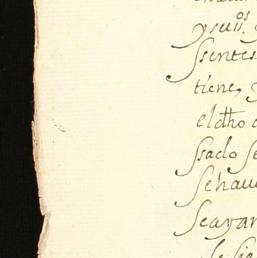 y suiios.
ssentes
tiene, y
el dho
ssado se
se hau
se ayan